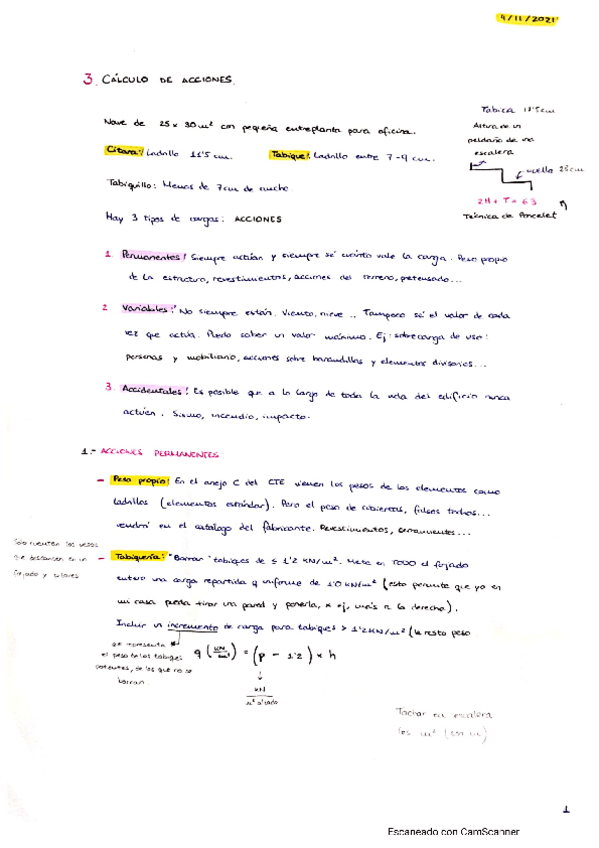 9/11/2021
3. CÁLCULO DE ACCIONES.
Nave de 25 x 30 m² con pequeña entreplanta para oficina.
Citara: Ladrillo 11'5 cm. Tabique: Ladrillo entre 7-9 cm.
Tabiquillo: Menos de 7cm de ancho.
Hay 3 tipos de cargas: ACCIONES
Tabica 17'5cm
Altura de un
peldaño de una
escalera
huella 28cm
2H + T = 63
Técnica de Poncelet
1. Permanentes: Siempre actúan y siempre sé cuánto vale la carga. Peso propio
de la estructura, revestimientos, acciones del terreno, pretensado...
2. Variables: No siempre están. Viento, nieve... Tampoco sé el valor de cada
vez que actúa. Puedo saber un valor máximo. Ej: sobrecarga de uso:
personas y mobiliario, acciones sobre barandillas y elementos divisorios...
3. Accidentales: Es posible que a lo largo de toda la vida del edificio nunca
actúen. Sismo, incendio, impacto.
1.- ACCIONES PERMANENTES
- Peso propio: En el anejo C del CTE vienen los pesos de los elementos como
ladrillos (elementos estándar). Pero el peso de cubiertas, falsos techos...
vendrá en el catálogo del fabricante. Revestimientos, cerramientos...
Solo cuentan los pesos
que descansen en un
forjado y pilares
- Tabiquería: "Borran" tabiques de ≤ 1'2 KN/m². Mete en TODO el forjado
entero una carga repartida q uniforme de 1'0 KN/m² (esto permite que yo en
mi casa pueda tirar una pared y ponerla, x ej, más a la derecha).
Incluir un incremento de carga para tabiques > 1'2 KN/m² (le resto peso
que representa
el peso de los tabiques
potentes, de los que no se
borran
q (KN/m) = (p - 1'2) x h
KN
m² alzado
Tachar en escalera
los m²
1
Escaneado con CamScanner